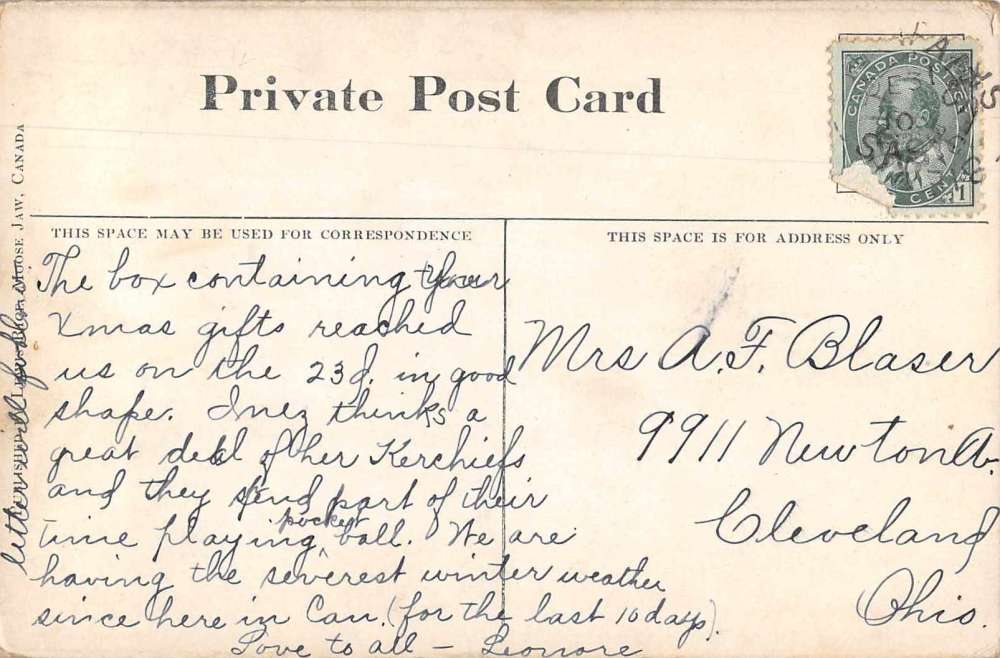 Private Post Card
CANADA POSTAGE
CENT
1
THIS SPACE MAY BE USED FOR CORRESPONDENCE
THIS SPACE IS FOR ADDRESS ONLY
MOOSE JAW, CANADA
The box containing your
Xmas gifts reached
us on the 23d. in good
shape. Inez thinks a
great deal of her Kerchiefs
and they spend part of their
time playing pocket ball. We are
having the severest winter weather
since here in Can. (for the last 10 days).
Love to all - Leonore
letter will follow
Mrs A. F. Blaser
9911 Newton Av.
Cleveland
Ohio.